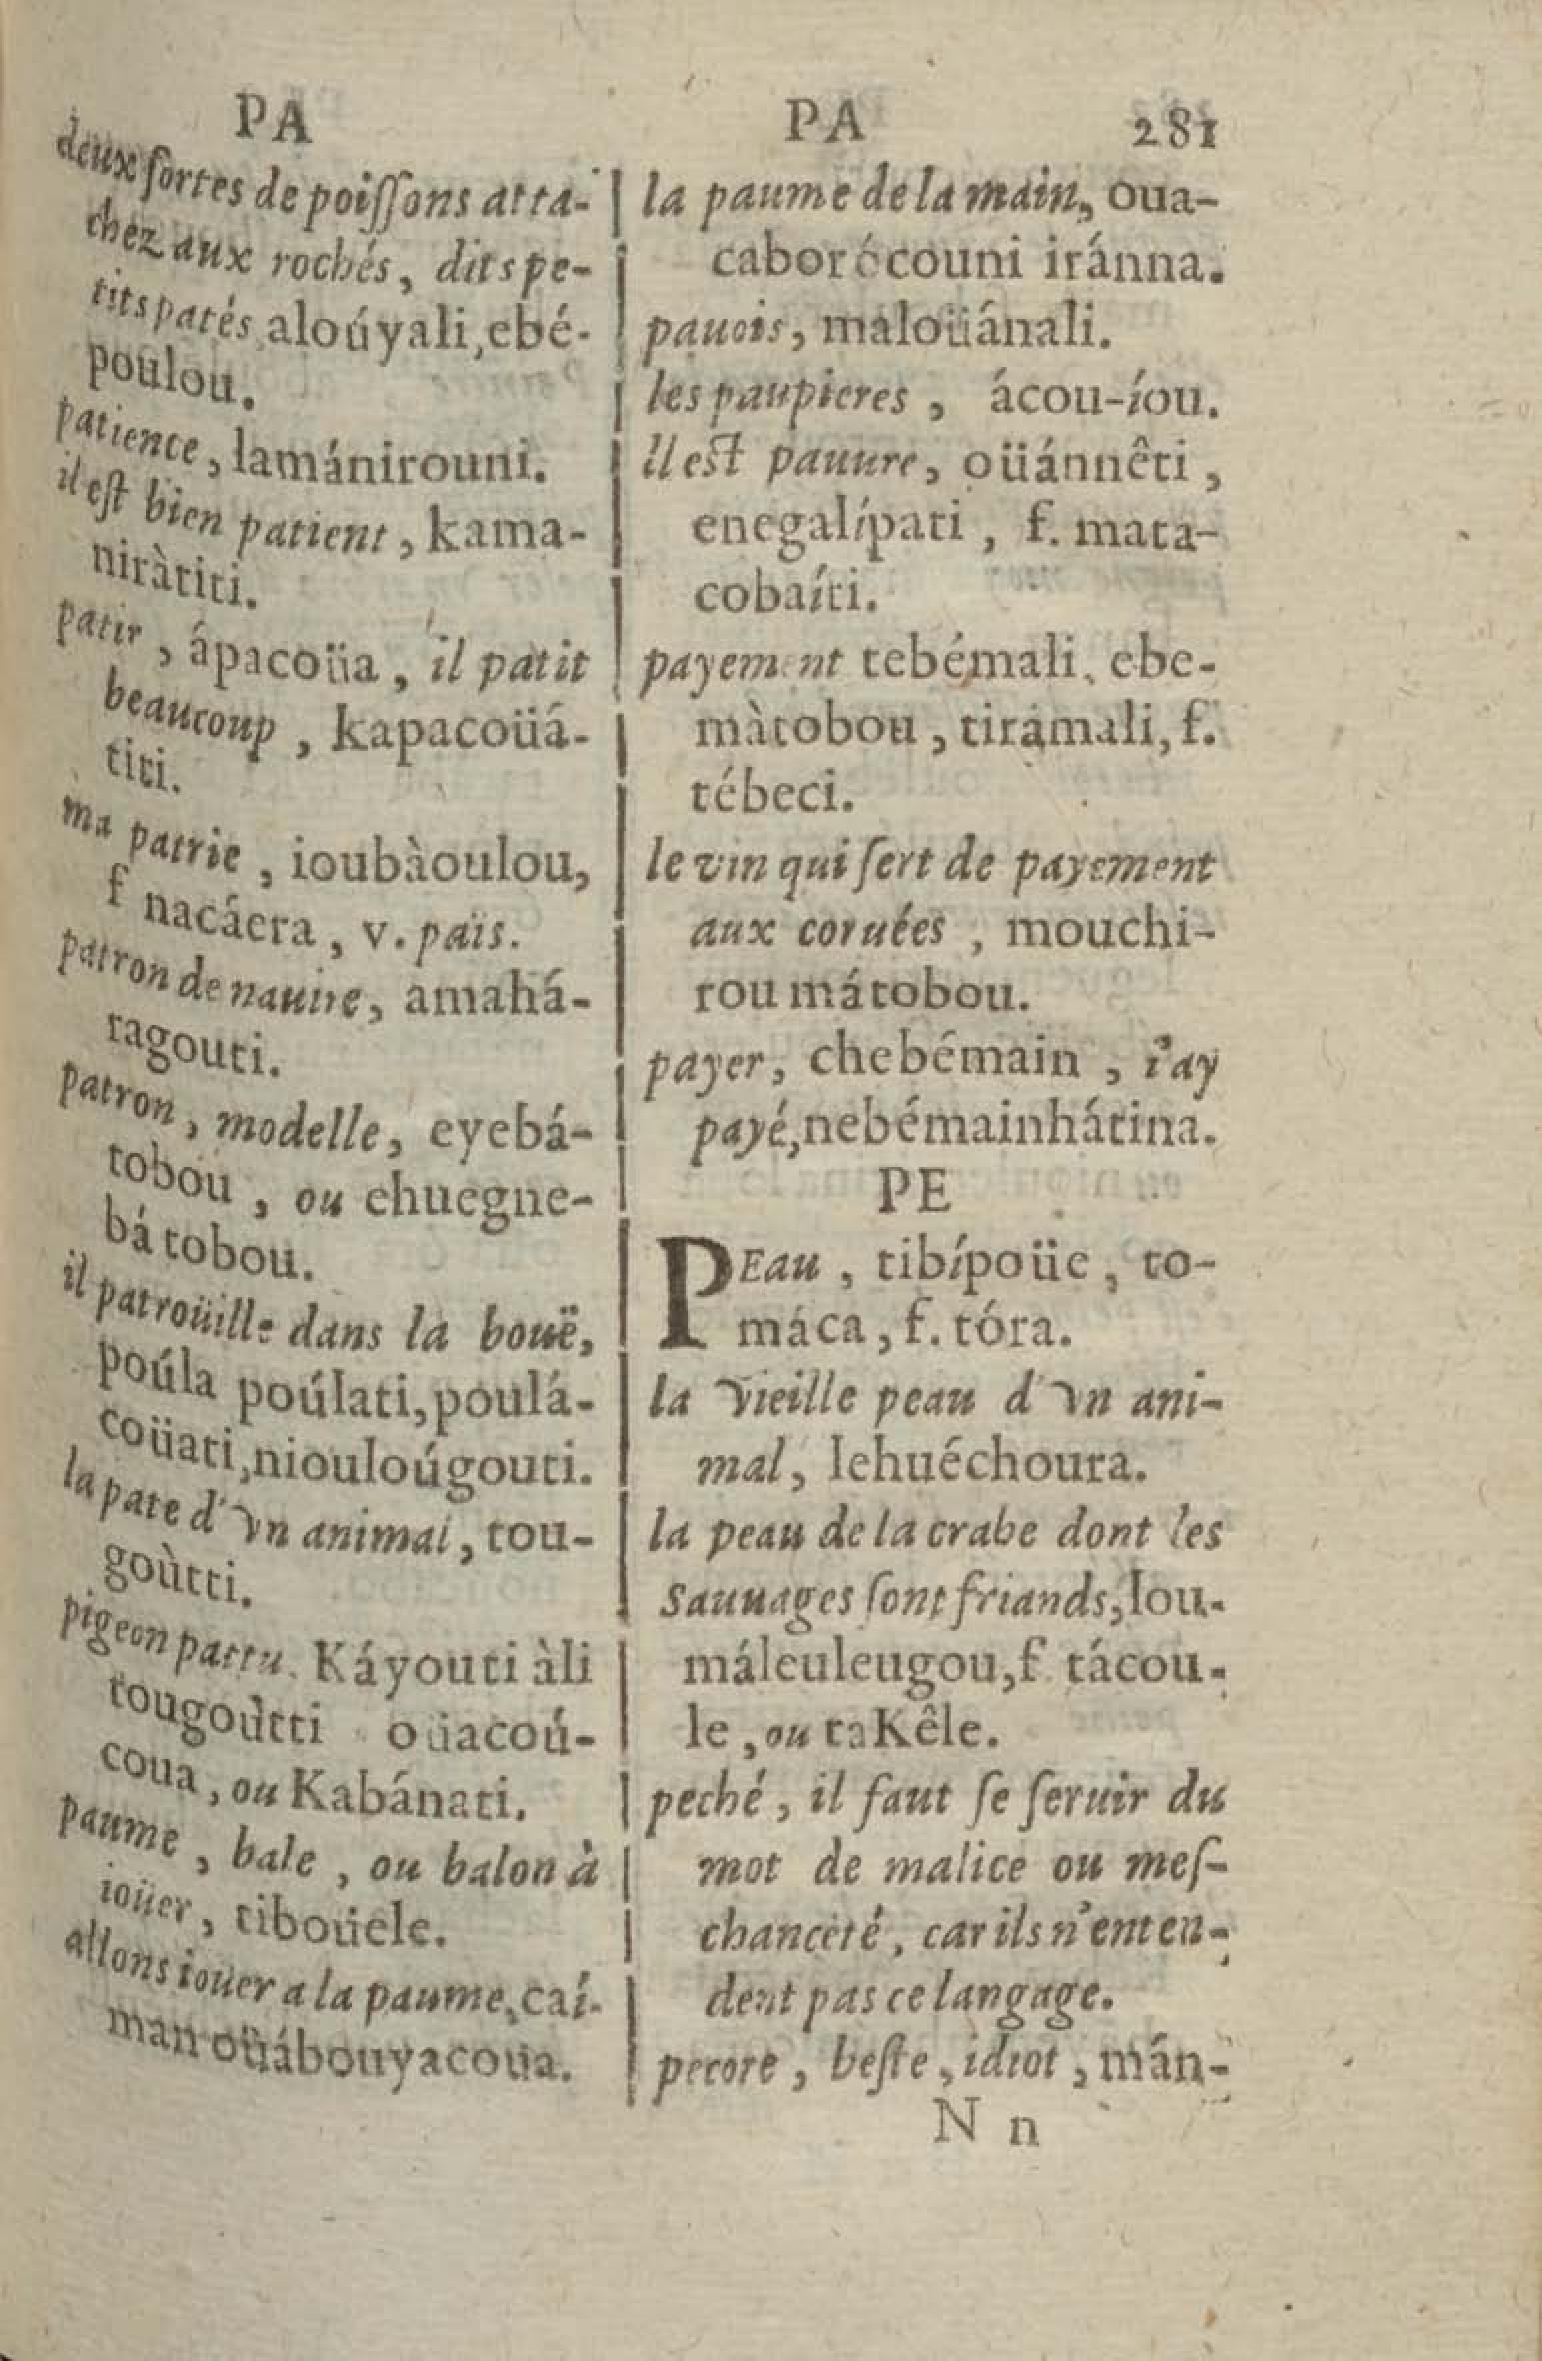 PA
deux ſortes de poiſſons atta-
chez aux rochés, dits pe-
tits patés, aloúyali, ebé-
poulou.
patience, lamánirouni.
il eſt bien patient, kama-
niràtiti.
patir, ápacoüa, il patit
beaucoup, kapacoüá-
titi.
ma patrie, ioubàoulou,
f nacáera, v. païs.
patron de nauire, amahá-
ragouti.
patron, modelle, eyebá-
tobou, ou ehuegne-
bá tobou.
il patroüille dans la bouë,
poúla poúlati, poulá-
coüati, nioulоúgouti.
la pate d'vn animal, tou-
goùtti.
pigeon pattu. Káyouti àli
tougoùtti oüacoú-
coua, ou Kabánati.
paume, bale, ou balon à
ioüer, tiboüele.
allons ioüer a la paume, caí-
man oüábouyacoüa.
PA 281
la paume de la main, oua-
caborócouni iránna.
pauois, maloüánali.
les paupieres, ácou-íou.
il eſt pauure, oüánnêti,
enegalípati, f. mata-
cobaíti.
payement tebémali, ebe-
màtobou, tiramali, f.
tébeci.
le vin qui ſert de payement
aux coruées, mouchi-
rou mátobou.
payer, chebémain, i'ay
payé, nebémainhátina.
PE
PEau, tibípoüe, to-
máca, f. tóra.
la vieille peau d'vn ani-
mal, lehuéchoura.
la peau de la crabe dont les
Sauuages ſont friands, lou-
máleuleugou, f. tácou-
le, ou taKêle.
peché, il faut ſe ſeruir du
mot de malice ou meſ-
chanceté, car ils n'enten-
dent pas ce langage.
pecore, beſte, idiot, mán-
N n